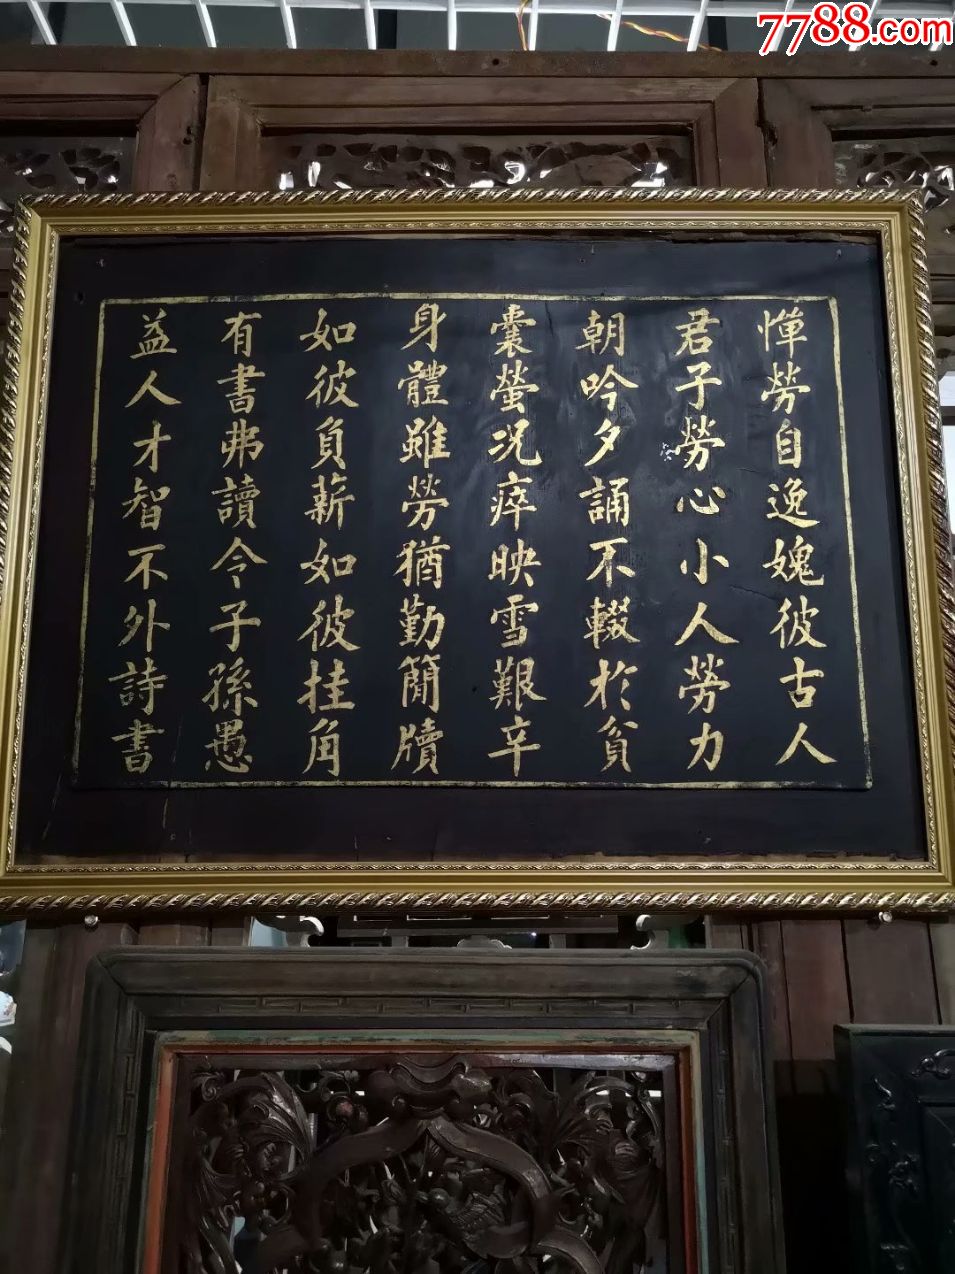 7788.com
憚勞自逸媿彼古人
君子勞心小人勞力
朝吟夕誦不輟於貧
囊螢況瘁映雪艱辛
身體雖勞猶勤簡牘
如彼負薪如彼挂角
有書弗讀令子孫愚
益人才智不外詩書